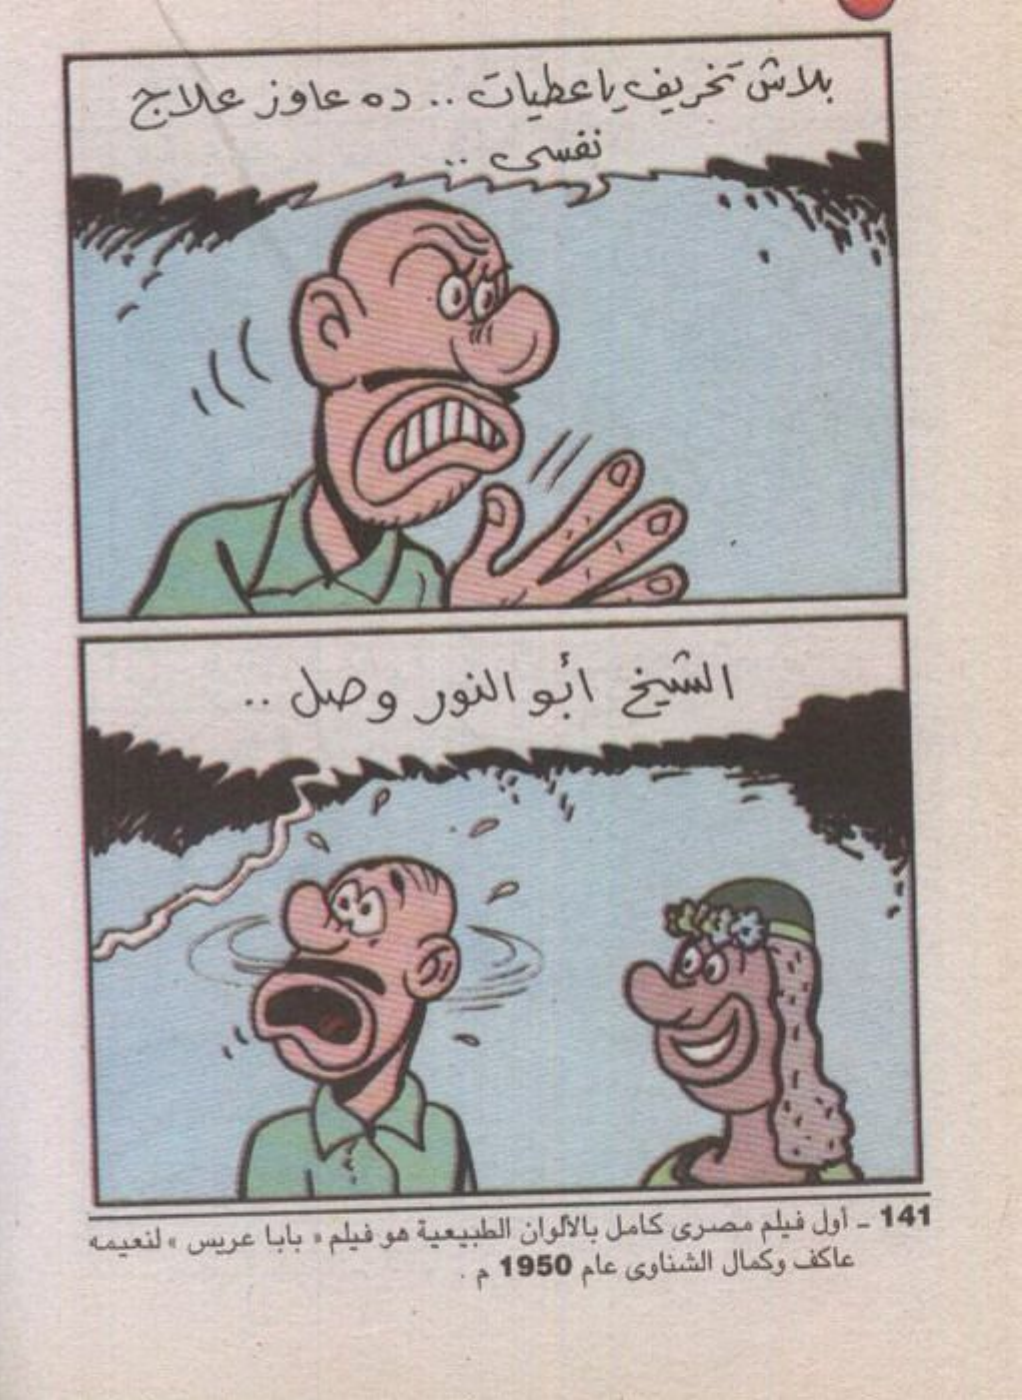 بلاش تخريف يا عطيات .. ده عاوز علاج
نفسى ..
الشيخ أبو النور وصل ..
141 ــ أول فيلم مصرى كامل بالألوان الطبيعية هو فيلم « بابا عريس » لنعيمه
عاكف وكمال الشناوى عام 1950 م .